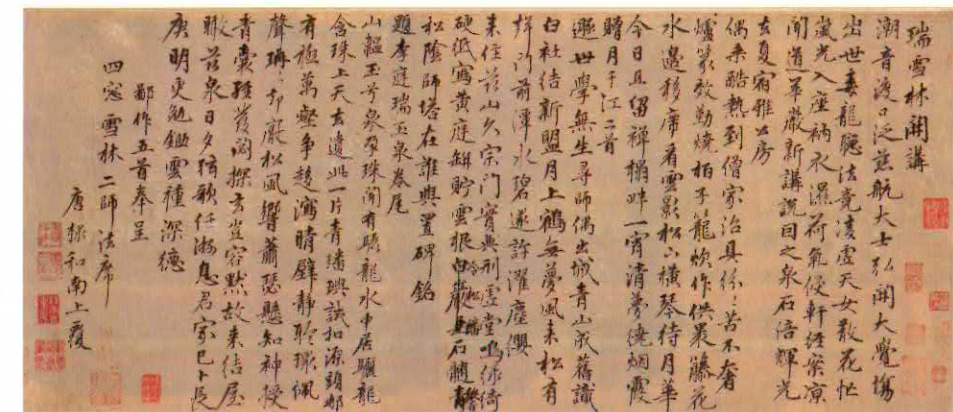 瑞雪林開講
潮音渡口泛慈航大士弘開大覺場
出世毒龍聽法竟凌虛天女散花忙
嵐光入座衲衣濕荷氣侵軒經案凉
聞道革嚴新講說目之泉石倍輝光
去夏宿雅公房
偶来酷熱到僧家治具係〻苦不奢
爐篆教勤燒柏子籠炊作供裹藤花
水邊移席看雲影松下横琴待月華
今日且留禪榻畔一宵清夢繞烟霞
贈月千江二首
遯世學無生尋師偶出城青山成舊識
白社結新盟月上鶴無夢風来松有
聲門前潭水碧遂許濯塵纓
来住兹山久宗門實典刑雪堂鳴
硬紙寫黄庭缾貯雲根白
松陰師塔在誰與置碑銘
題李廷瑞玉泉卷尾
山韞玉兮泉孕珠聞有睡龍水中居驪龍
含珠上天去遺此一片青璠璵試扣源頭那
有極萬壑争趍瀉晴壁静聆環佩
聲琤〻却厭松風響蕭瑟懸知神授
青囊探玄豈容默故来結屋
聯兹泉日夕弦歌仟游息君家已卜長
庚明更勉鋤雲種深德
鄙作五首奉呈
四寇雪林二師 法席
唐棣和南上覆